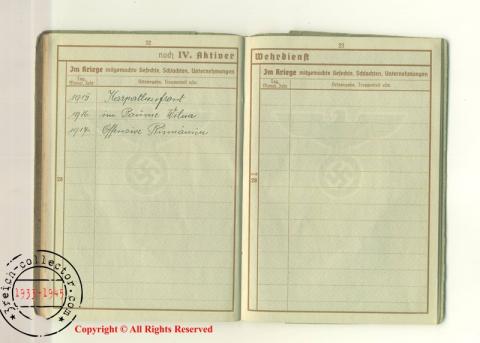 32
noch IV. Aktiver
Im Kriege mitgemachte Gefechte, Schlachten, Unternehmungen
Tag, Monat, Jahr
Ortsangabe, Truppenteil usw.
1915 Karpathenfront
1916 im Raume Wilna
1917 Offensive Rumänien
28
33
Wehrdienst
Im Kriege mitgemachte Gefechte, Schlachten, Unternehmungen
Tag, Monat, Jahr
Ortsangabe, Truppenteil usw.
28
3reich-collector.com
1933-1945
Copyright © All Rights Reserved